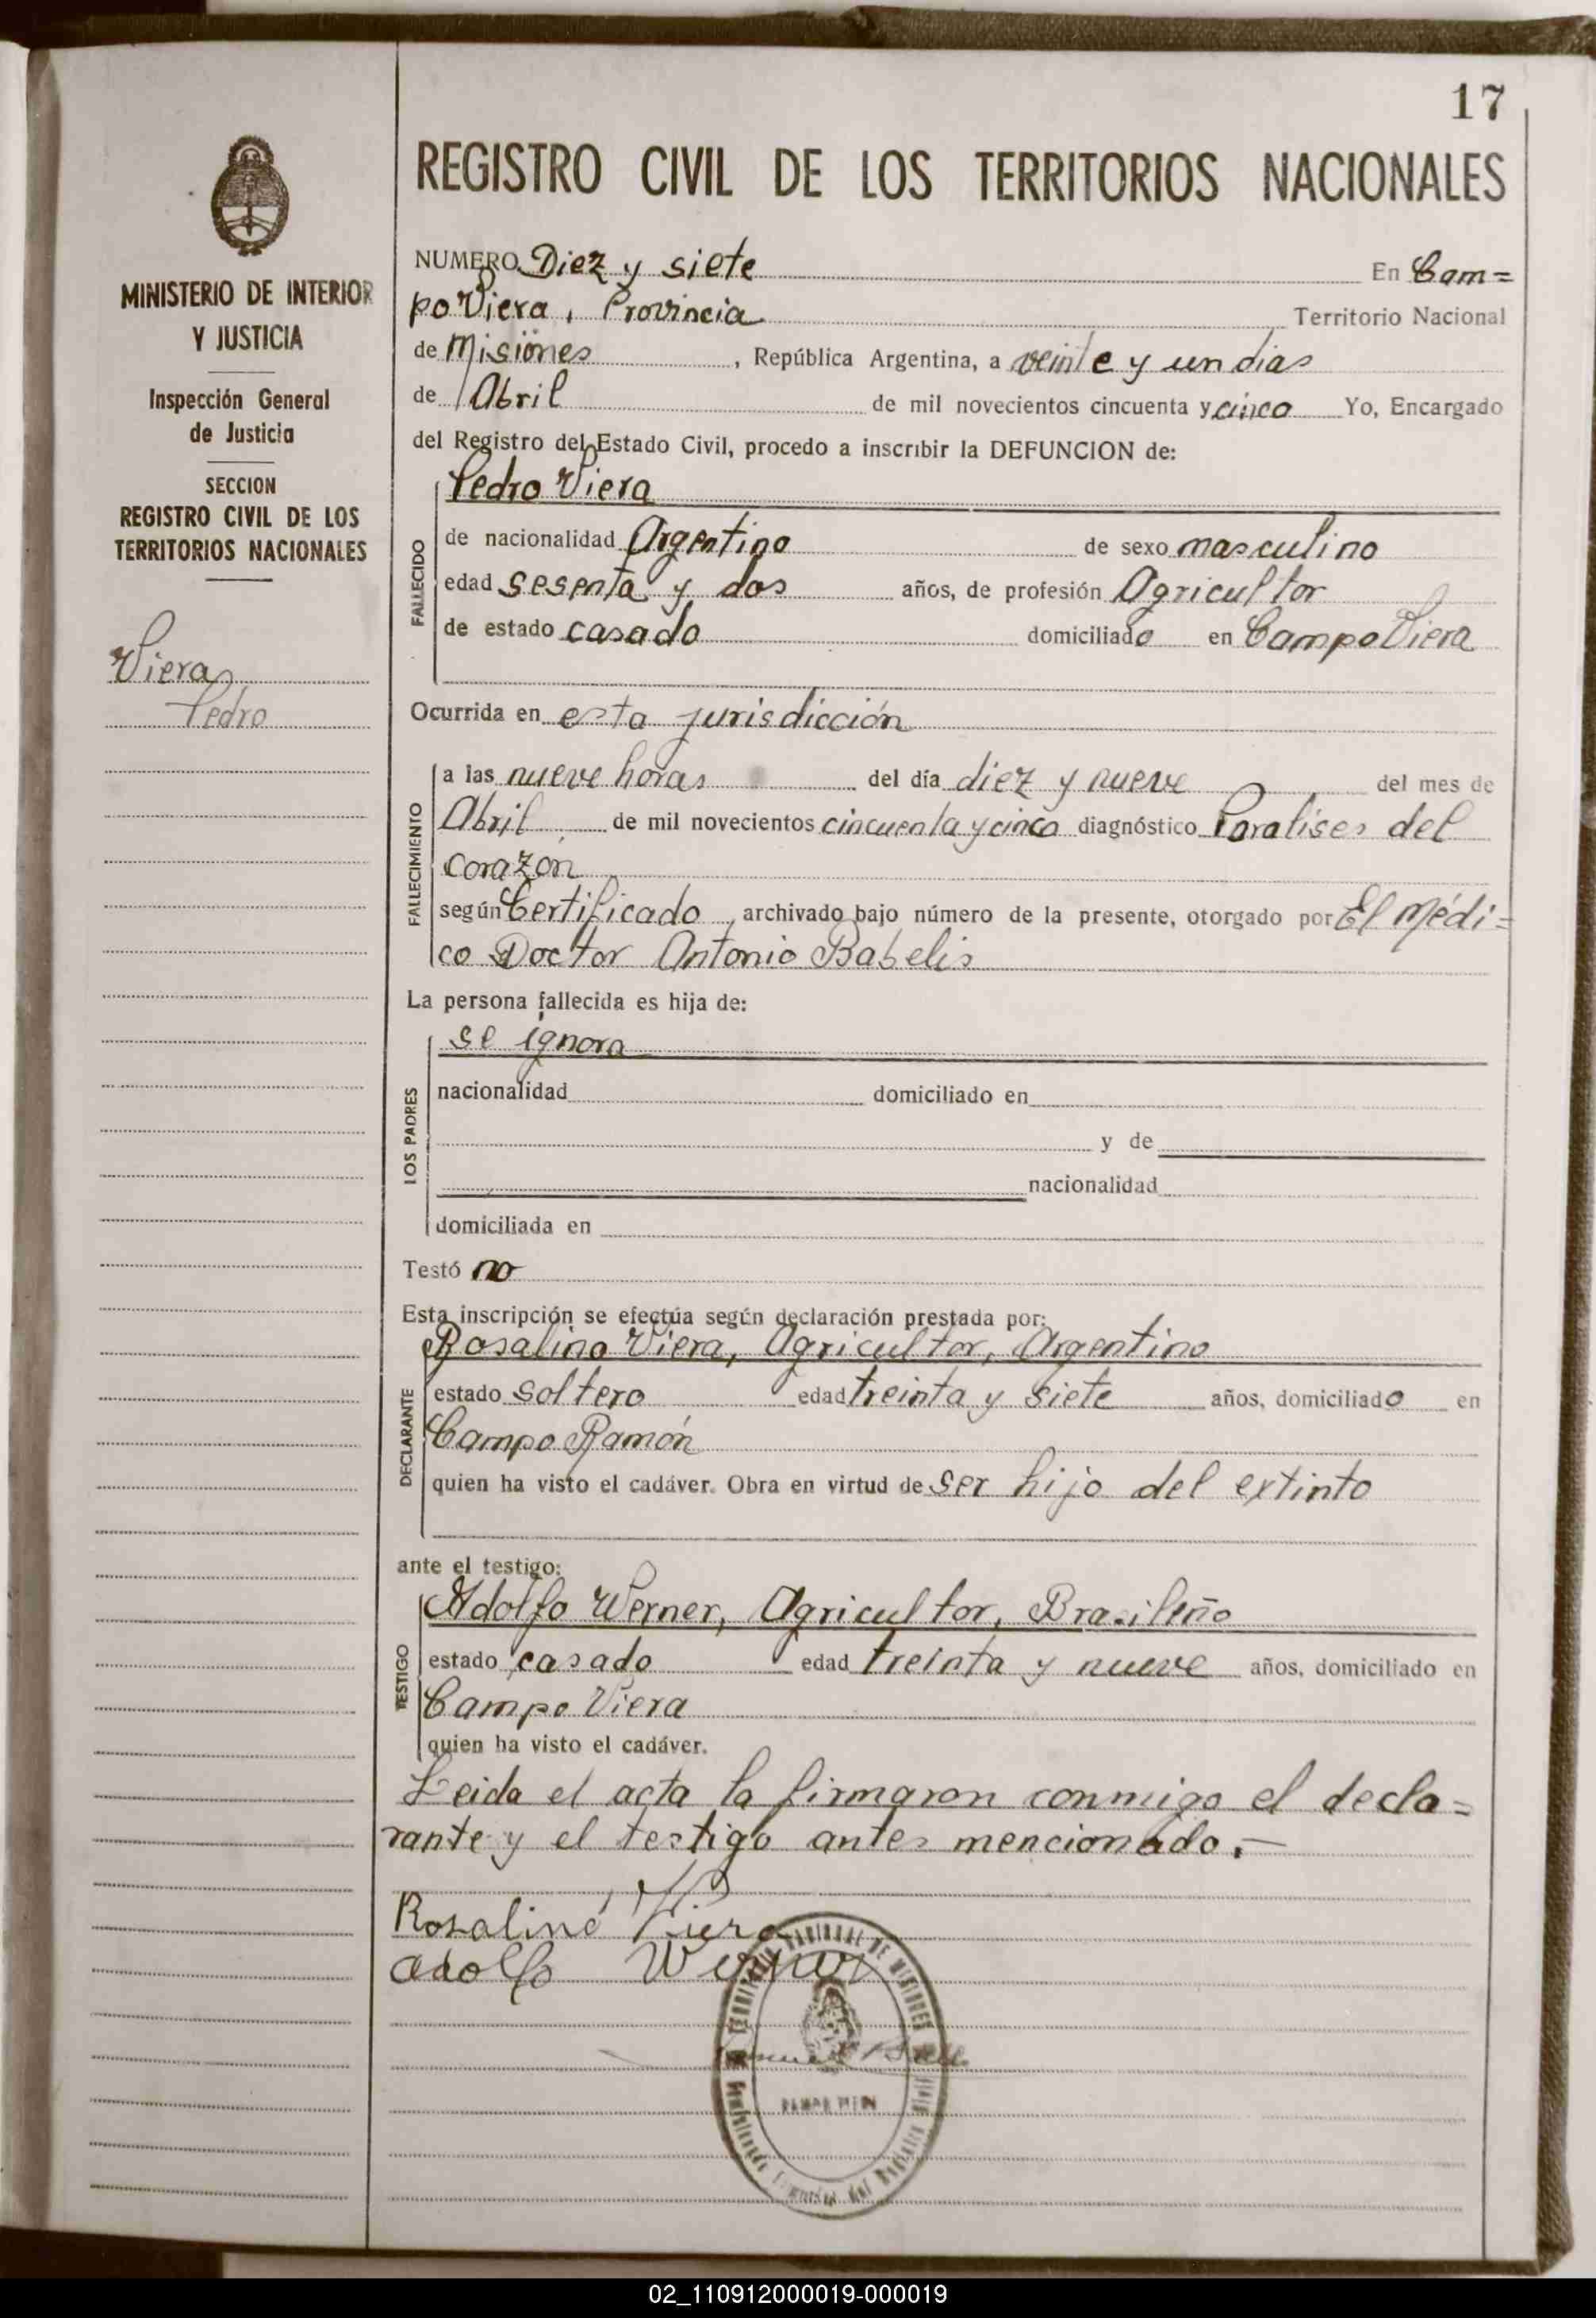 17
REGISTRO CIVIL DE LOS TERRITORIOS NACIONALES
MINISTERIO DE INTERIOR
Y JUSTICIA
Inspección General
de Justicia
SECCION
REGISTRO CIVIL DE LOS
TERRITORIOS NACIONALES
Viera
Pedro
NUMERO Diez y siete En Cam=
po Viera, Provincia Territorio Nacional
de Misiones, República Argentina, a veinte y un dias
de Abril de mil novecientos cincuenta y cinco Yo, Encargado
del Registro del Estado Civil, procedo a inscribir la DEFUNCION de:
FALLECIDO
Pedro Viera
de nacionalidad Argentino de sexo masculino
edad sesenta y dos años, de profesión Agricultor
de estado casado domiciliado en Campo Viera
Ocurrida en esta jurisdicción
FALLECIMIENTO
a las nueve horas del día diez y nueve del mes de
Abril de mil novecientos cincuenta y cinco diagnóstico Paralises del
corazón
según Certificado, archivado bajo número de la presente, otorgado por El Médi=
co Doctor Antonio Babelis
La persona fallecida es hija de:
LOS PADRES
se ignora
nacionalidad domiciliado en
y de
nacionalidad
domiciliada en
Testó no
Esta inscripción se efectúa según declaración prestada por:
DECLARANTE
Rosalino Viera, Agricultor, Argentino
estado soltero edad treinta y siete años, domiciliado en
Campo Ramón
quien ha visto el cadáver. Obra en virtud de ser hijo del extinto
ante el testigo:
TESTIGO
Adolfo Werner, Agricultor, Brasileño
estado casado edad treinta y nueve años, domiciliado en
Campo Viera
quien ha visto el cadáver.
Leida el acta la firmaron conmigo el decla=
rante y el testigo antes mencionado.-
Rosalino Viera
Adolfo Werner
DE MISIONES
02_110912000019-000019